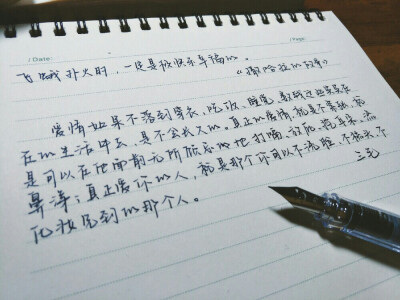 /Date:
/Page:
飞蛾扑火时，一定是极快乐幸福的。
《撒哈拉的故事》
爱情如果不落到穿衣、吃饭、睡觉、数钱这些实实在
在的生活中去，是不会长久的。真正的爱情，就是不紧张，就
是可以在他面前无所顾忌地打嗝、放屁、挖耳朵、流
鼻涕；真正爱你的人，就是那个你可以不洗脸、不梳头、不
化妆见到的那个人。
三毛